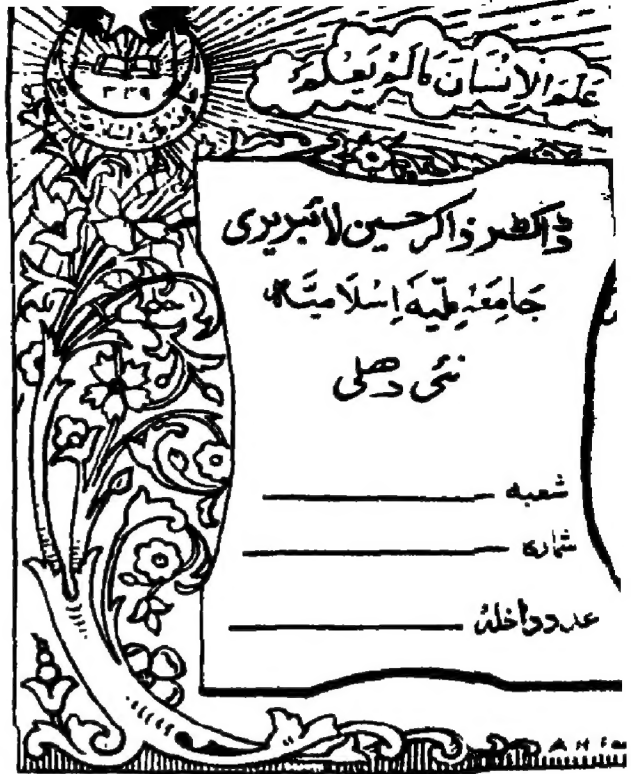 عَلَّمَ الْاِنْسَانَ مَا لَمْ يَعْلَمْ
۳۳۹
ڈاکٹر ذاکر حسین لائبریری
جَامِعَہ مِلّیَہ اِسْلَامِیَّہ
نئی دھلی
شعبہ
شمارہ
عدد داخلہ